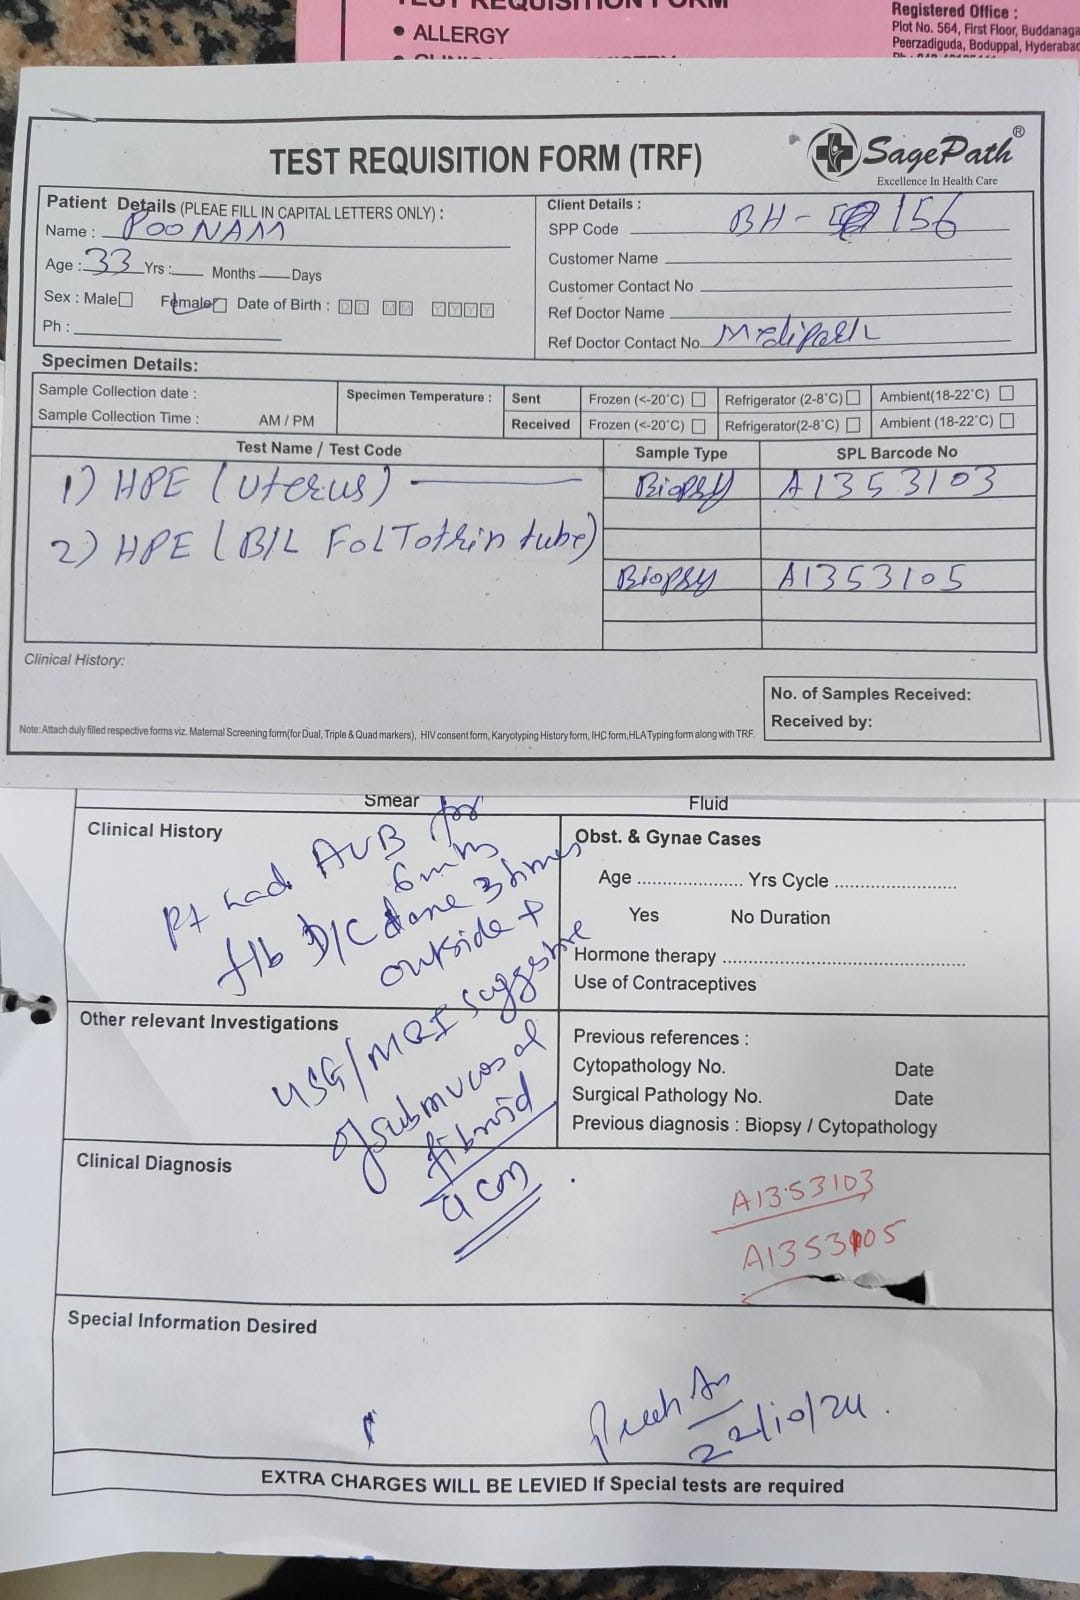 TEST REQUISITION FORM
• ALLERGY
Registered Office :
Plot No. 564, First Floor, Buddanaga
Peerzadiguda, Boduppal, Hyderabad
TEST REQUISITION FORM (TRF)
SagePath®
Excellence In Health Care
Patient Details (PLEAE FILL IN CAPITAL LETTERS ONLY) :
Name : POONAM
Age : 33 Yrs : Months Days
Sex : Male Female Date of Birth : D D M M Y Y Y Y
Ph :
Client Details :
SPP Code BH- 156
Customer Name
Customer Contact No
Ref Doctor Name
Ref Doctor Contact No. Medipath
Specimen Details:
Sample Collection date :
Sample Collection Time : AM / PM
Specimen Temperature :
Sent Frozen (<-20°C) Refrigerator (2-8°C) Ambient(18-22°C)
Received Frozen (<-20°C) Refrigerator(2-8°C) Ambient (18-22°C)
Test Name / Test Code Sample Type SPL Barcode No
1) HPE (Uterus) Biopsy A1353103
2) HPE (B/L FolTothin tube)
Biopsy A1353105
Clinical History:
No. of Samples Received:
Received by:
Note: Attach duly filled respective forms viz. Maternal Screening form(for Dual, Triple & Quad markers), HIV consent form, Karyotyping History form, IHC form,HLA Typing form along with TRF.
Smear Fluid
Clinical History
Pt had AUB for
6 mths
f/b D/C done 3 times
outside +
USG/MRI suggestive
of submucosal
fibroid
4 cm
Obst. & Gynae Cases
Age .................... Yrs Cycle ........................
Yes No Duration
Hormone therapy ................................................
Use of Contraceptives
Other relevant Investigations
Previous references :
Cytopathology No. Date
Surgical Pathology No. Date
Previous diagnosis : Biopsy / Cytopathology
Clinical Diagnosis
A1353103
A1353105
Special Information Desired
22/10/24.
EXTRA CHARGES WILL BE LEVIED If Special tests are required